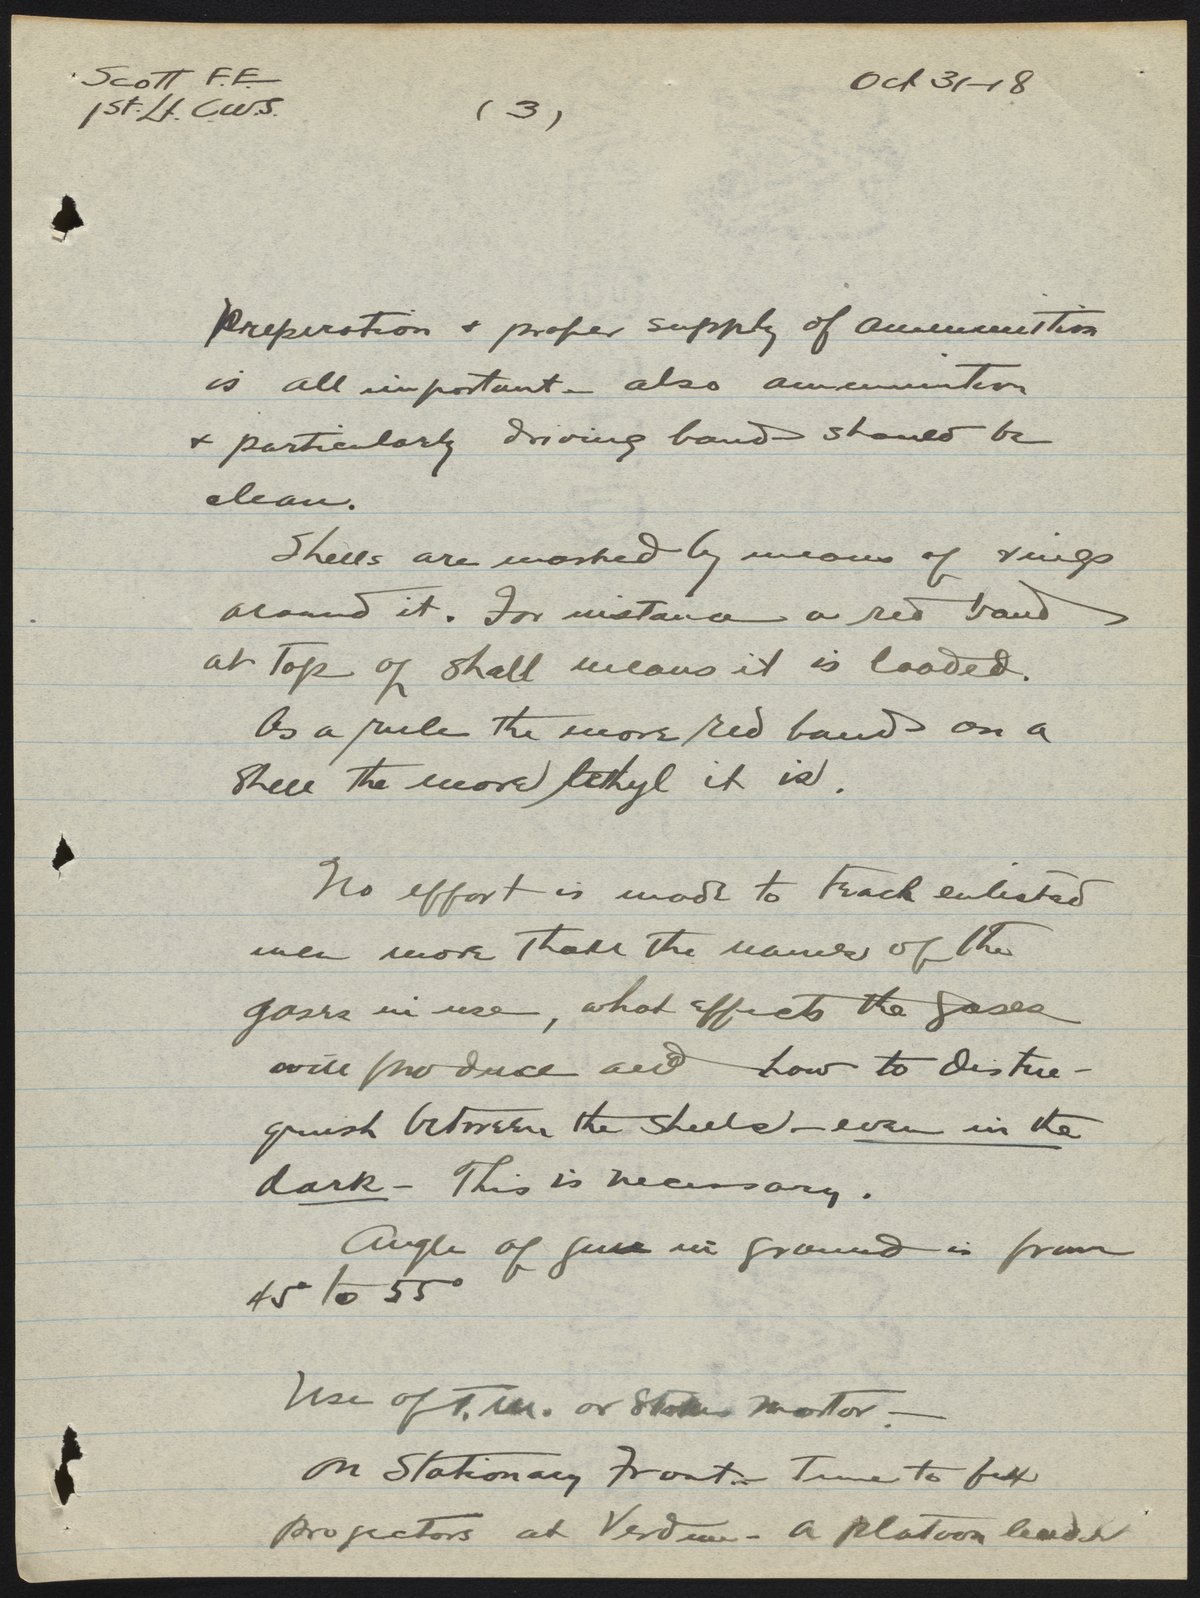 Scott F.F.
1st. Lt. C.W.S.
(3)
Oct 31-18
Preperation & proper supply of ammunition
is all important - also ammunition
& particularly driving bands should be
clean.
Shells are marked by means of rings
around it. For instance a red band
at top of shell means it is loaded.
As a rule the more red bands on a
shell the more lethyl it is.
No effort is made to teach enlisted
men more than the names of the
gases in use, what effects the gases
will produce and how to distin-
guish between the shells - even in the
dark - This is necessary.
Angle of gun in ground is from
45° to 55°
Use of T.M. or Stokes Mortor. -
On Stationary Front - Time to
projectors at Verdun - A platoon leader